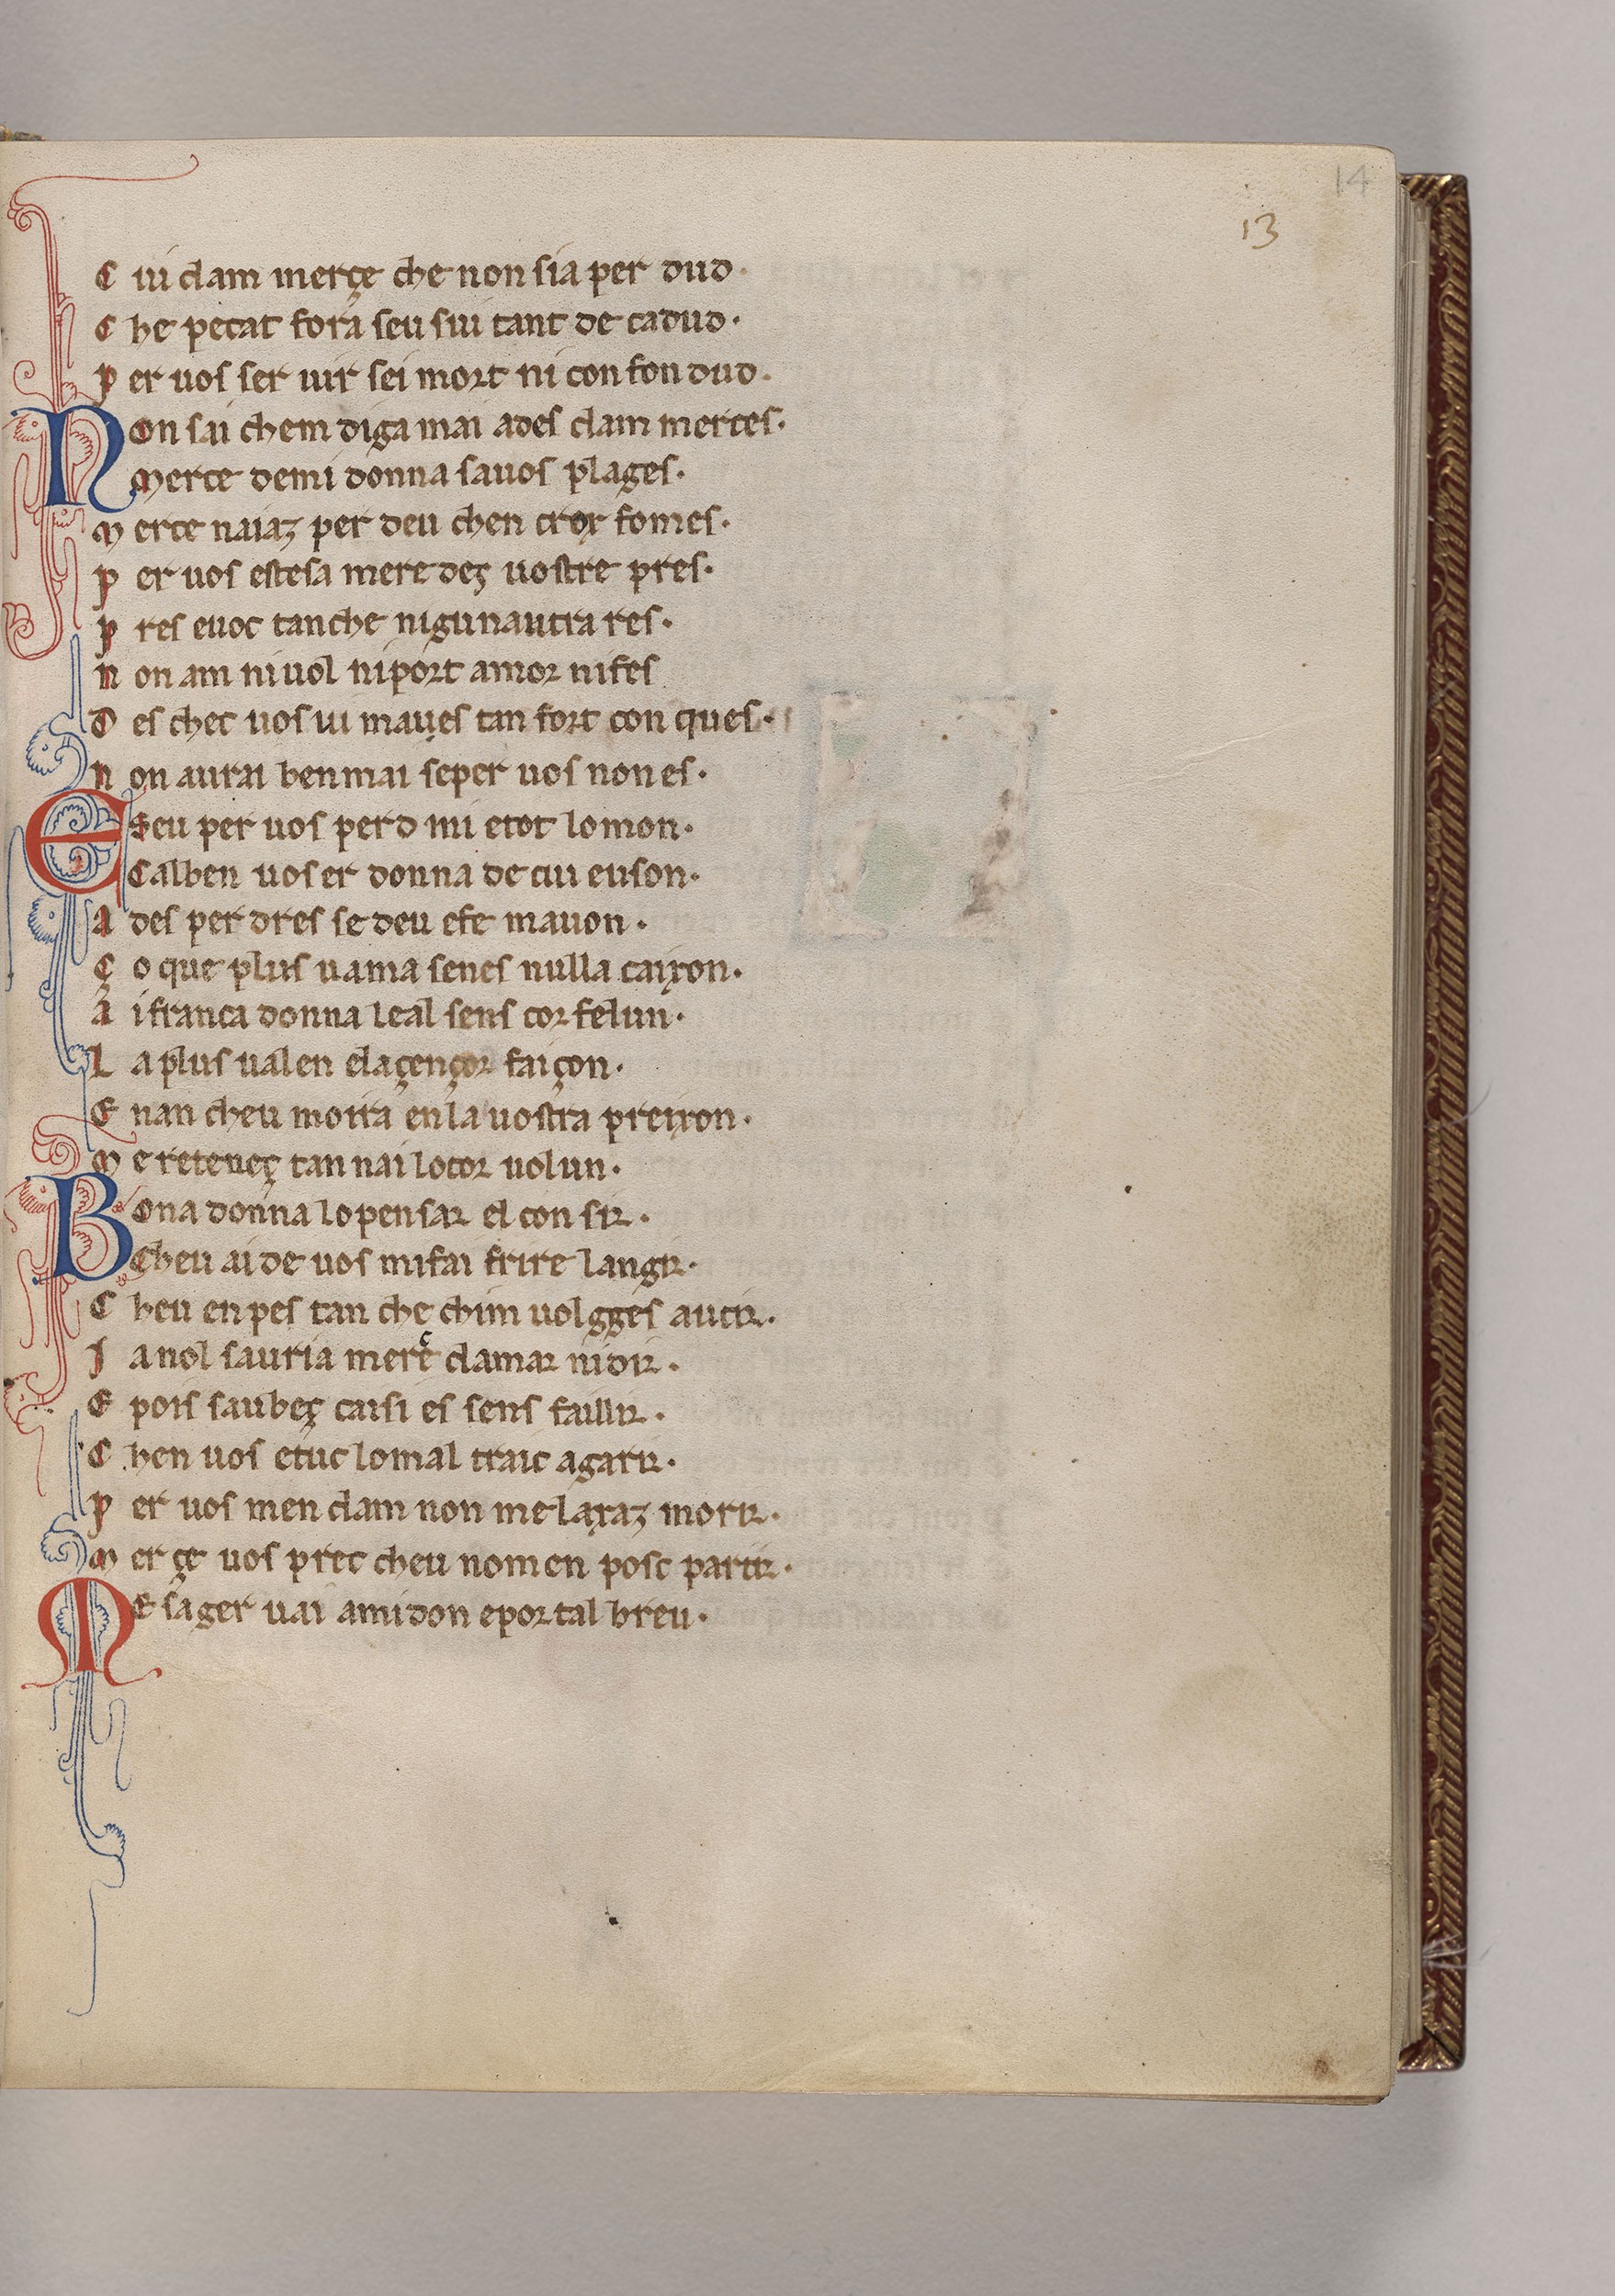 14
13
C ui clam merçe che non sia per dud·
C he pecat fora seu sui tant de cadud·
P er uos ser uir sei mort ni con fon dud·
Non sai chem diga mai ades clam merces·
Merce demi donna sauos plages·
M erce naiaz per deu chen crox fo mes·
P er uos estesa mere deç uostre pres·
P res euoc tanche nigunautra res·
N on am ni uol ni port amor nifes
D es chec uos ui maues tan fort con ques·
N on aurai ben mai seper uos non es·
E Seu per uos perd mi etot lo mon·
Calben uos er donna de cui euson·
A des per dres se deu efe mauon·
Ç o que plus uama senes nulla caixon·
A i franca donna leal sens cor felun·
L a plus ualen elaçençor faiçon·
E nan cheu moira en la uostra preixon·
M e reteneç tan nai locor uolun·
Bona donna lo pensar el con sir·
Cheu ai de uos mi fai frire langir·
C heu en pes tan che chim uolgges aucir·
J a nol sauria merce clamar ni dir·
E pois saubeç caisi es sens faillir·
C hen uos etuc lo mal traic agarir·
P er uos men clam non me laxaz morir·
M er çe uos prec cheu nom en posc partir·
ME sager uai amidon eportal breu·